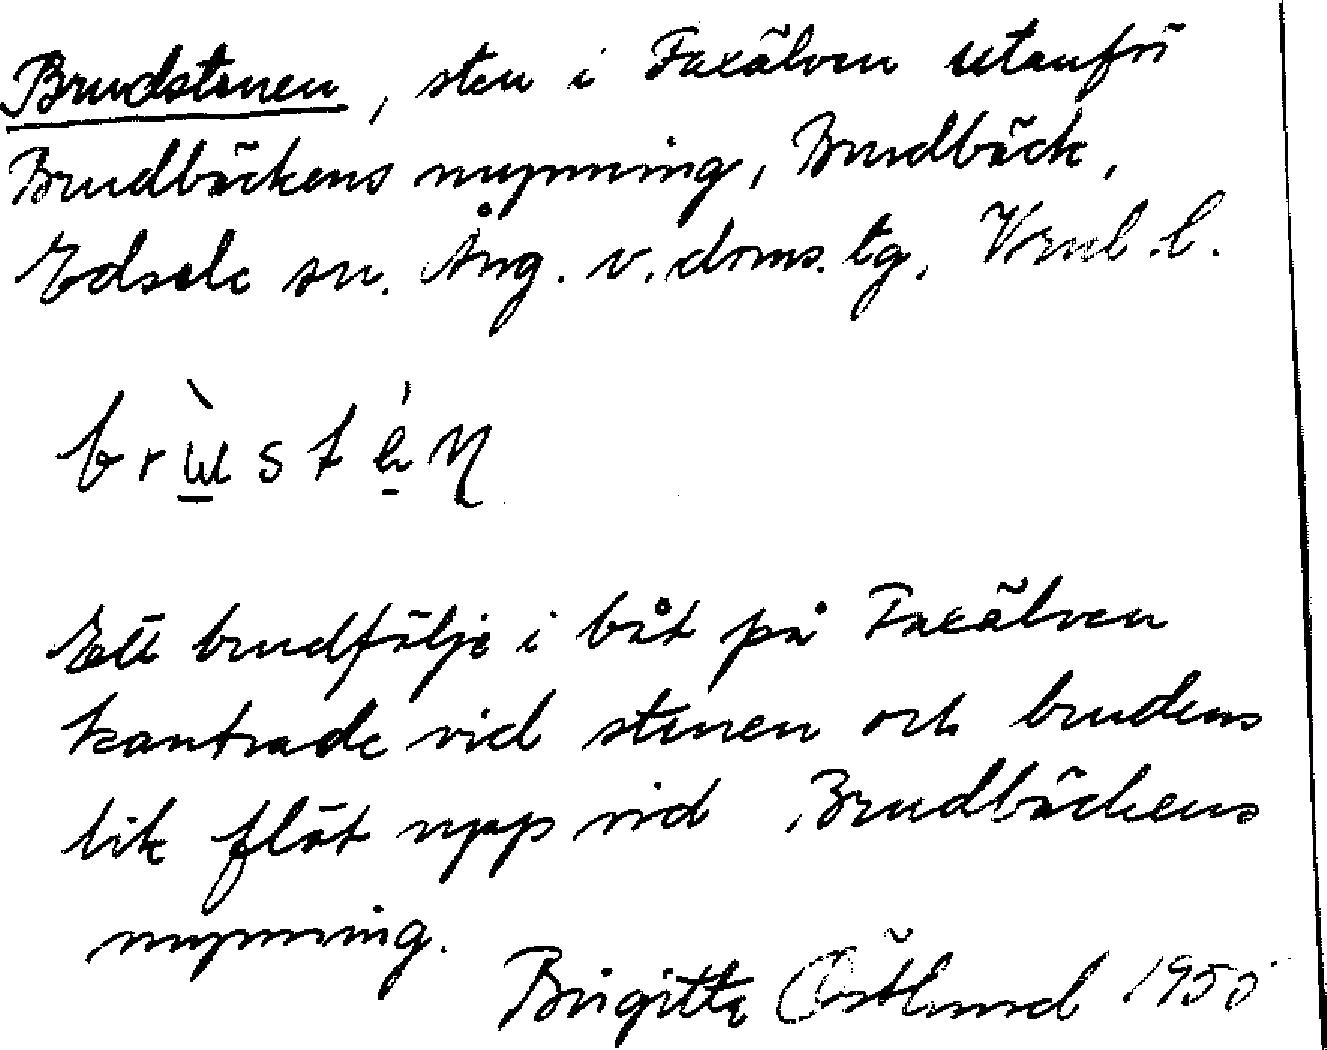 Brudstenen, sten i Faxälven utanför
Brudbäckens mynning, Brudbäck,
Edsele sn. Ång. v. doms. tg, Vnl. l.
brùsté̠ɳ
Ett brudfölje i båt på Faxälven
kantrade vid stenen och brudens
lik flöt upp vid Brudbäckens
mynning.
Birgitta Östlund 1950